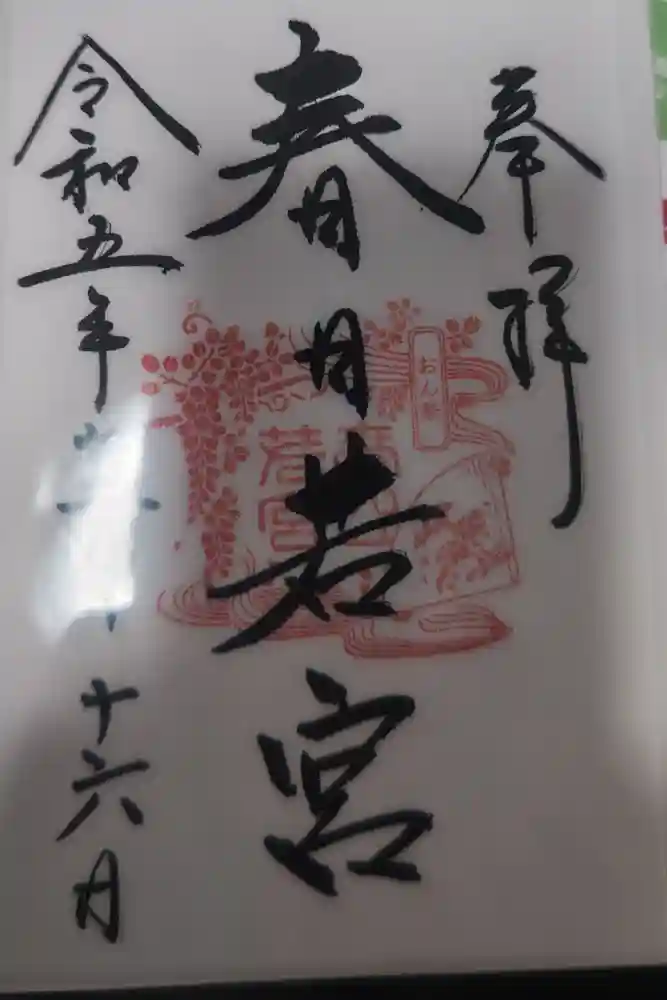 奉拝
春日若宮
令和五年 十六日
おん祭